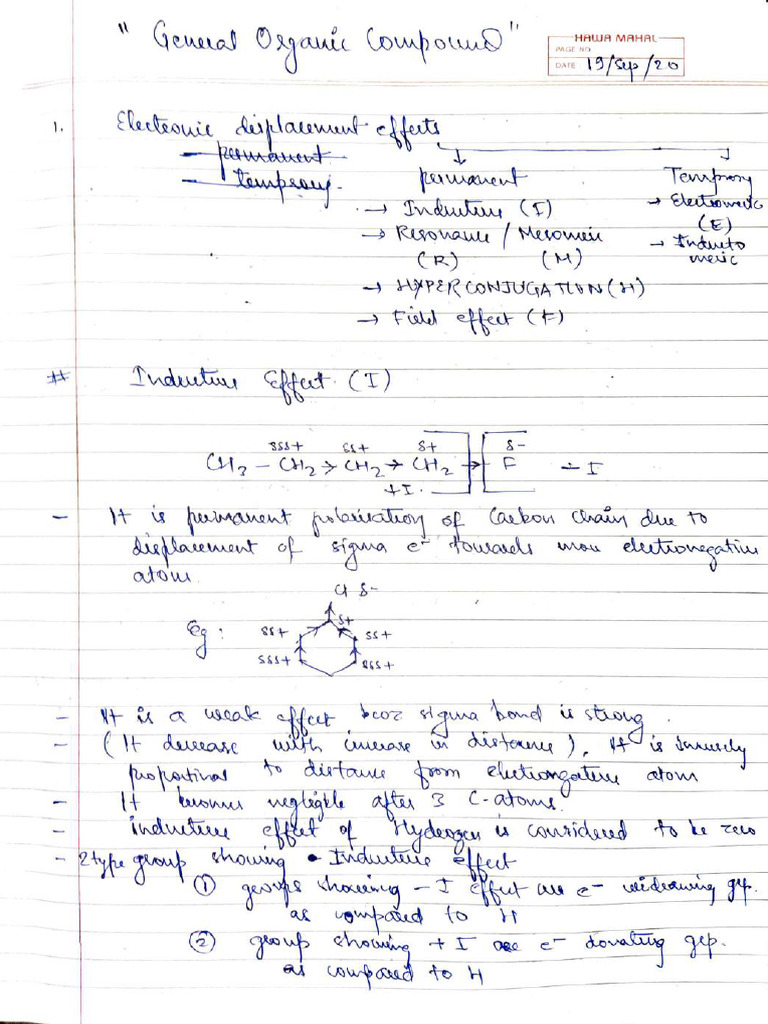 " General Organic Compound "
HAWA MAHAL
PAGE NO
DATE 19/Sep/20
1. Electronic displacement effects
- permanent
- temprory.
permanent
Temprory
→ Inductive (I)
→ Resonance / Mesomeric
(R) (M)
→ HYPERCONJUGATION (H)
→ Field effect (F)
→ Electromeric
(E)
→ Inducto
meric
# Inductive Effect (I)
sss+ ss+ s+ s-
CH3 - CH2 > CH2 → CH2 → F - I
+I.
- It is permanent polarisation of Carbon chain due to
displacement of sigma e- towards more electronegative
atom.
Cl s-
Eg : ss+ s+ ss+
sss+ sss+
- It is a weak effect bcoz sigma bond is strong.
- (It decrease with increase in distance), It is inversely
proportional to distance from electronegative atom
- It becomes negligible after 3 C-atoms.
- inductive effect of Hydrogen is considered to be zero
- 2 type group showing Inductive effect
① groups showing - I effect are e- widrawing grp.
as compared to H
② group showing + I are e- donating grp.
as compared to H